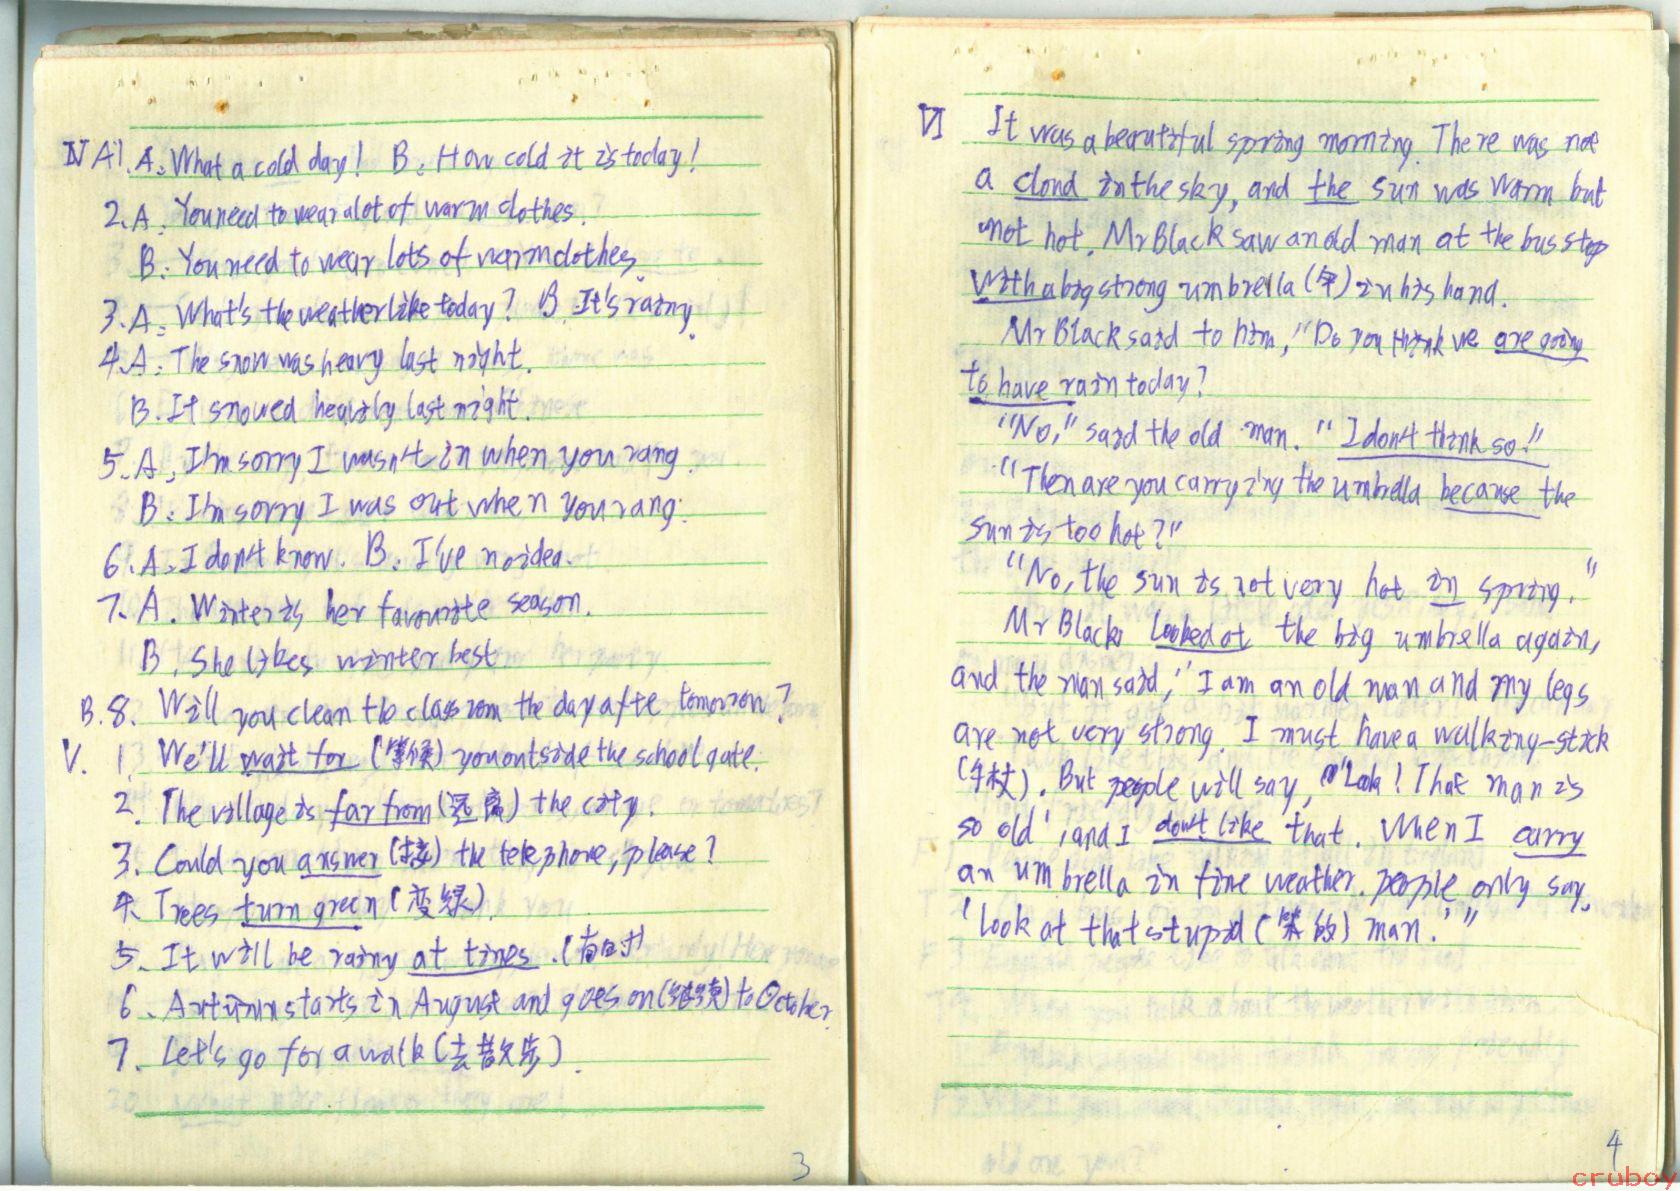 IV A1. A: What a cold day! B: How cold it is today!
2. A: You need to wear a lot of warm clothes.
B: You need to wear lots of warm clothes.
3. A: What's the weather like today? B. It's rainy.
4. A: The snow was heavy last night.
B. It snowed heavily last night.
5. A: I'm sorry I wasn't in when you rang.
B: I'm sorry I was out when you rang.
6. A: I don't know. B: I've no idea.
7. A. Winter is her favourite season.
B. She likes winter best
B. 8. Will you clean the classroom the day afte tomorrow?
V. 1. We'll wait for (等候) you outside the school gate.
2. The village is far from (远离) the city.
3. Could you answer (接) the telephone, please?
4. Trees turn green (变绿).
5. It will be rainy at times. (有时)
6. Autumn starts in August and goes on (继续) to October.
7. Let's go for a walk (去散步).
3
VI It was a beautiful spring morning. There was not
a cloud in the sky, and the sun was warm but
not hot. Mr Black saw an old man at the bus stop
with a big strong umbrella (伞) in his hand.
Mr Black said to him, "Do you think we are going
to have rain today?
"No," said the old man. "I don't think so."
"Then are you carrying the umbrella because the
sun is too hot?"
"No, the sun is not very hot in spring."
Mr Black looked at the big umbrella again,
and the man said, "I am an old man and my legs
are not very strong. I must have a walking-stick
(手杖). But people will say, "Look! That man is
so old', and I don't like that. When I carry
an umbrella in fine weather. people only say,
'look at that stupid (笨的) man.'"
4
cruboy